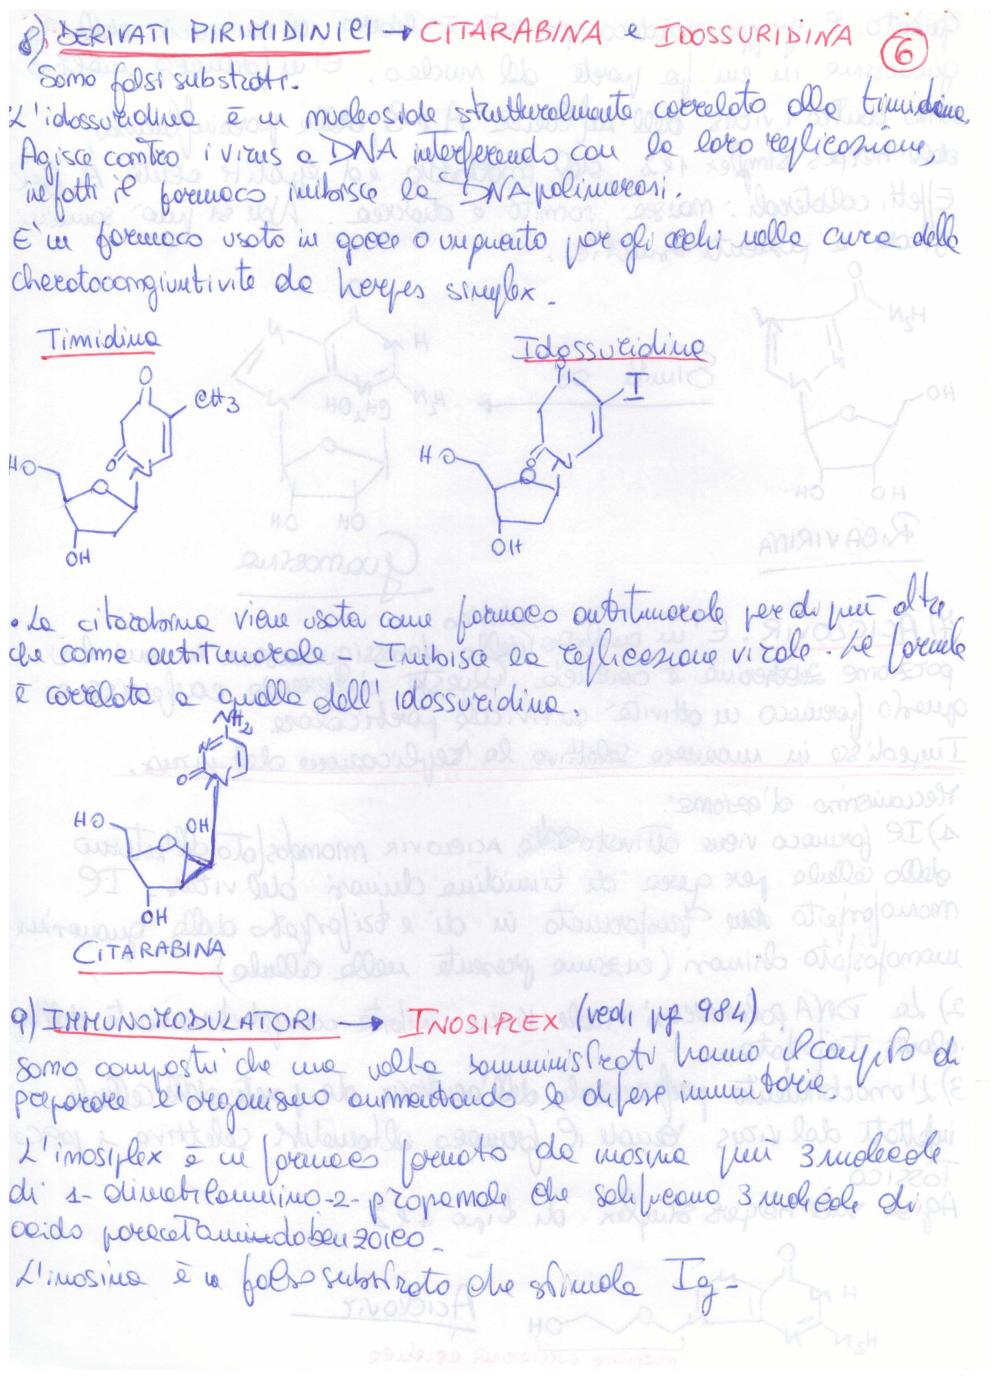 8) DERIVATI PIRIMIDINICI → CITARABINA e IDOSSURIDINA 6
Sono falsi substrati.
L'idossuridina è un nucleoside strutturalmente correlato alla timidina.
Agisce contro i virus a DNA interferendo con la loro replicazione,
infatti il farmaco inibisce la DNA polimerasi.
E' un farmaco usato in gocce o unguento per gli occhi nella cura delle
cheratocongiuntivite da herpes simplex.
Timidina
Idossuridina
O
CH3
O
N
HO
O
OH
O
I
O
N
HO
O
OH
• La citarabina viene usata come farmaco antitumorale per di più oltre
che come antitumorale - Inibisce la replicazione virale. La formula
è correlata a quella dell'idossuridina.
NH2
N
O
N
HO
OH
O
OH
CITARABINA
9) IMMUNOMODULATORI → INOSIPLEX (vedi pg 984)
Sono composti che una volta somministrati hanno il compito di
preparare l'organismo aumentando le difese immunitarie.
L'inosiplex è un farmaco formato da inosina più 3 molecole
di 1-dimetilammino-2-propanolo che salificano 3 molecole di
acido paracetamindobenzoico.
L'inosina è un falso substrato che stimola Ig-